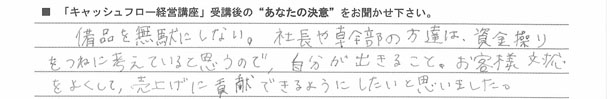 ■ 「キャッシュフロー経営講座」受講後の“あなたの決意”をお聞かせ下さい。
備品を無駄にしない。社長や幹部の方達は、資金操り
をつねに考えていると思うので、自分が出きること。お客様対応
をよくして、売上げに貢献できるようにしたいと思いました。